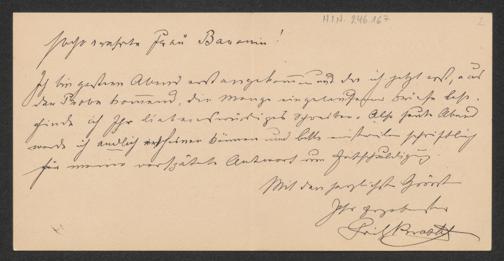 H.I.N. 246.167
2
Hochverehrte Frau Baronin!
Ich bin gestern Abend erst angekommen und da ich jetzt erst, aus
der Probe kommend, die Menge eingelaufener Briefe lese,
finde ich Ihr liebenswürdiges Schreiben. Also heute Abend
werde ich endlich erscheinen können und bitte einstweilen schriftlich
für meine verspätete Antwort um Entschuldigung.
Mit den herzlichsten Grüssen
Ihr ergebenster
Fritz